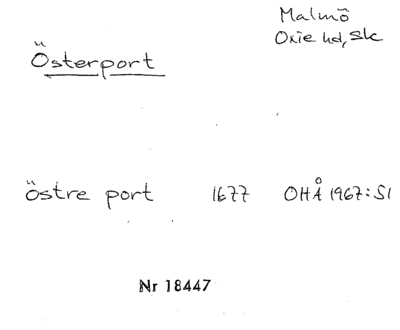 Malmö
Oxie hd, Sk
Österport
östre port 1677 OHÅ 1967:51
Nr 18447